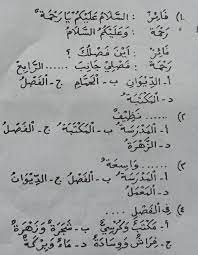 ١) فَارِسْ : السَّلَامُ عَلَيْكُمْ يَا رَحْمَةُ
رَحْمَةُ : وَعَلَيْكُمُ السَّلَامُ
فَارِسْ : أَيْنَ فَصْلُكِ ؟
رَحْمَةُ : فَصْلِيْ جَانِبَ ...... الرَّابِعْ
أ- الدِّيْوَانِ ب- الْحَمَّامِ ج- الْفَصْلُ
د- الْمَكْتَبَةُ
٢) ...... نَظِيْفٌ
أ- الْمَدْرَسَةُ ب- الْمَكْتَبَةُ ج- الْفَصْلُ
د- الزَّهْرَةُ
٣) ...... وَاسِعَةٌ
أ- الْمَدْرَسَةُ ب- الْفَصْلُ ج- الدِّيْوَانُ
د- الْمَعْمَلُ
٤) فِي الْفَصْلِ ....
أ- مَكْتَبٌ وَكُرْسِيٌّ ب- شَجَرَةٌ وَزَهْرَةٌ
ج- فِرَاشٌ وَوِسَادَةٌ د- مَاءٌ وَبِرْكَةٌ